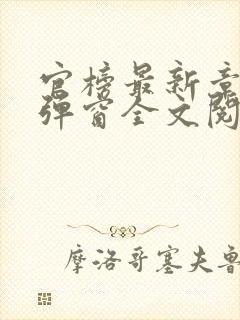 官榜最新章
弹窗全文阅
摩洛哥塞夫鲁